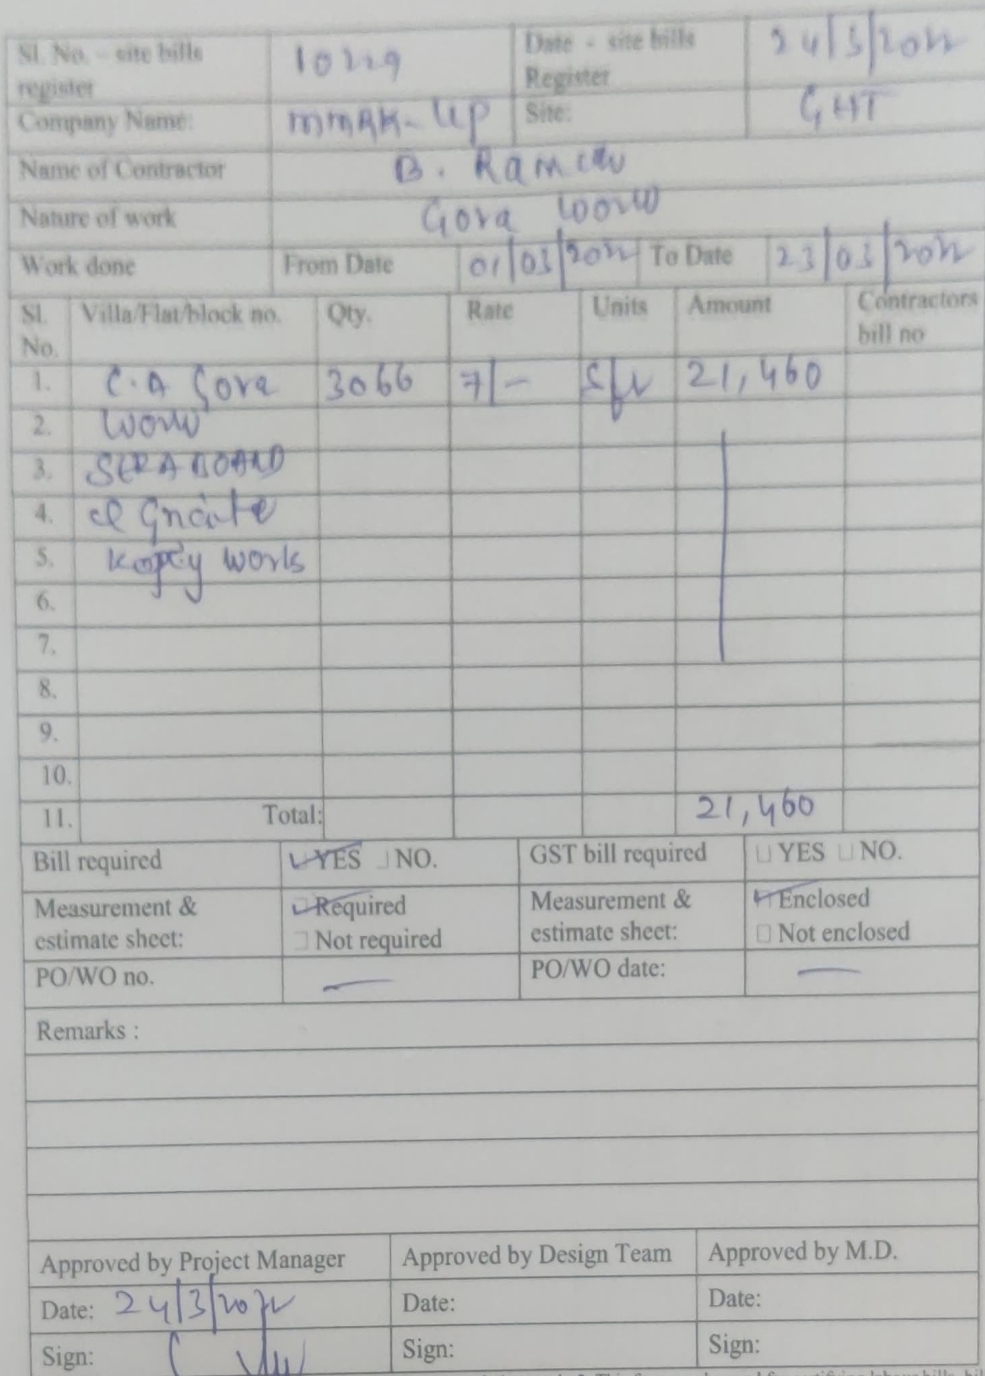 Sl. No. – site bills register 10229 Date - site bills Register 24/3/2022
Company Name: MMRK-UP Site: GHT
Name of Contractor B. Ramulu
Nature of work Gova work
Work done From Date 01/03/2022 To Date 23/03/2022
Sl. No. Villa/Flat/block no. Qty. Rate Units Amount Contractors bill no
1. C.A Gova 3066 7/- Sft 21,460
2. work
3. SERABOARD
4.
5. work
6.
7.
8.
9.
10.
11. Total: 21,460
Bill required YES NO. GST bill required YES NO.
Measurement & estimate sheet: Required Not required Measurement & estimate sheet: Enclosed Not enclosed
PO/WO no. — PO/WO date: —
Remarks :
Approved by Project Manager Approved by Design Team Approved by M.D.
Date: 24/3/2022 Date: Date:
Sign: Sign: Sign: